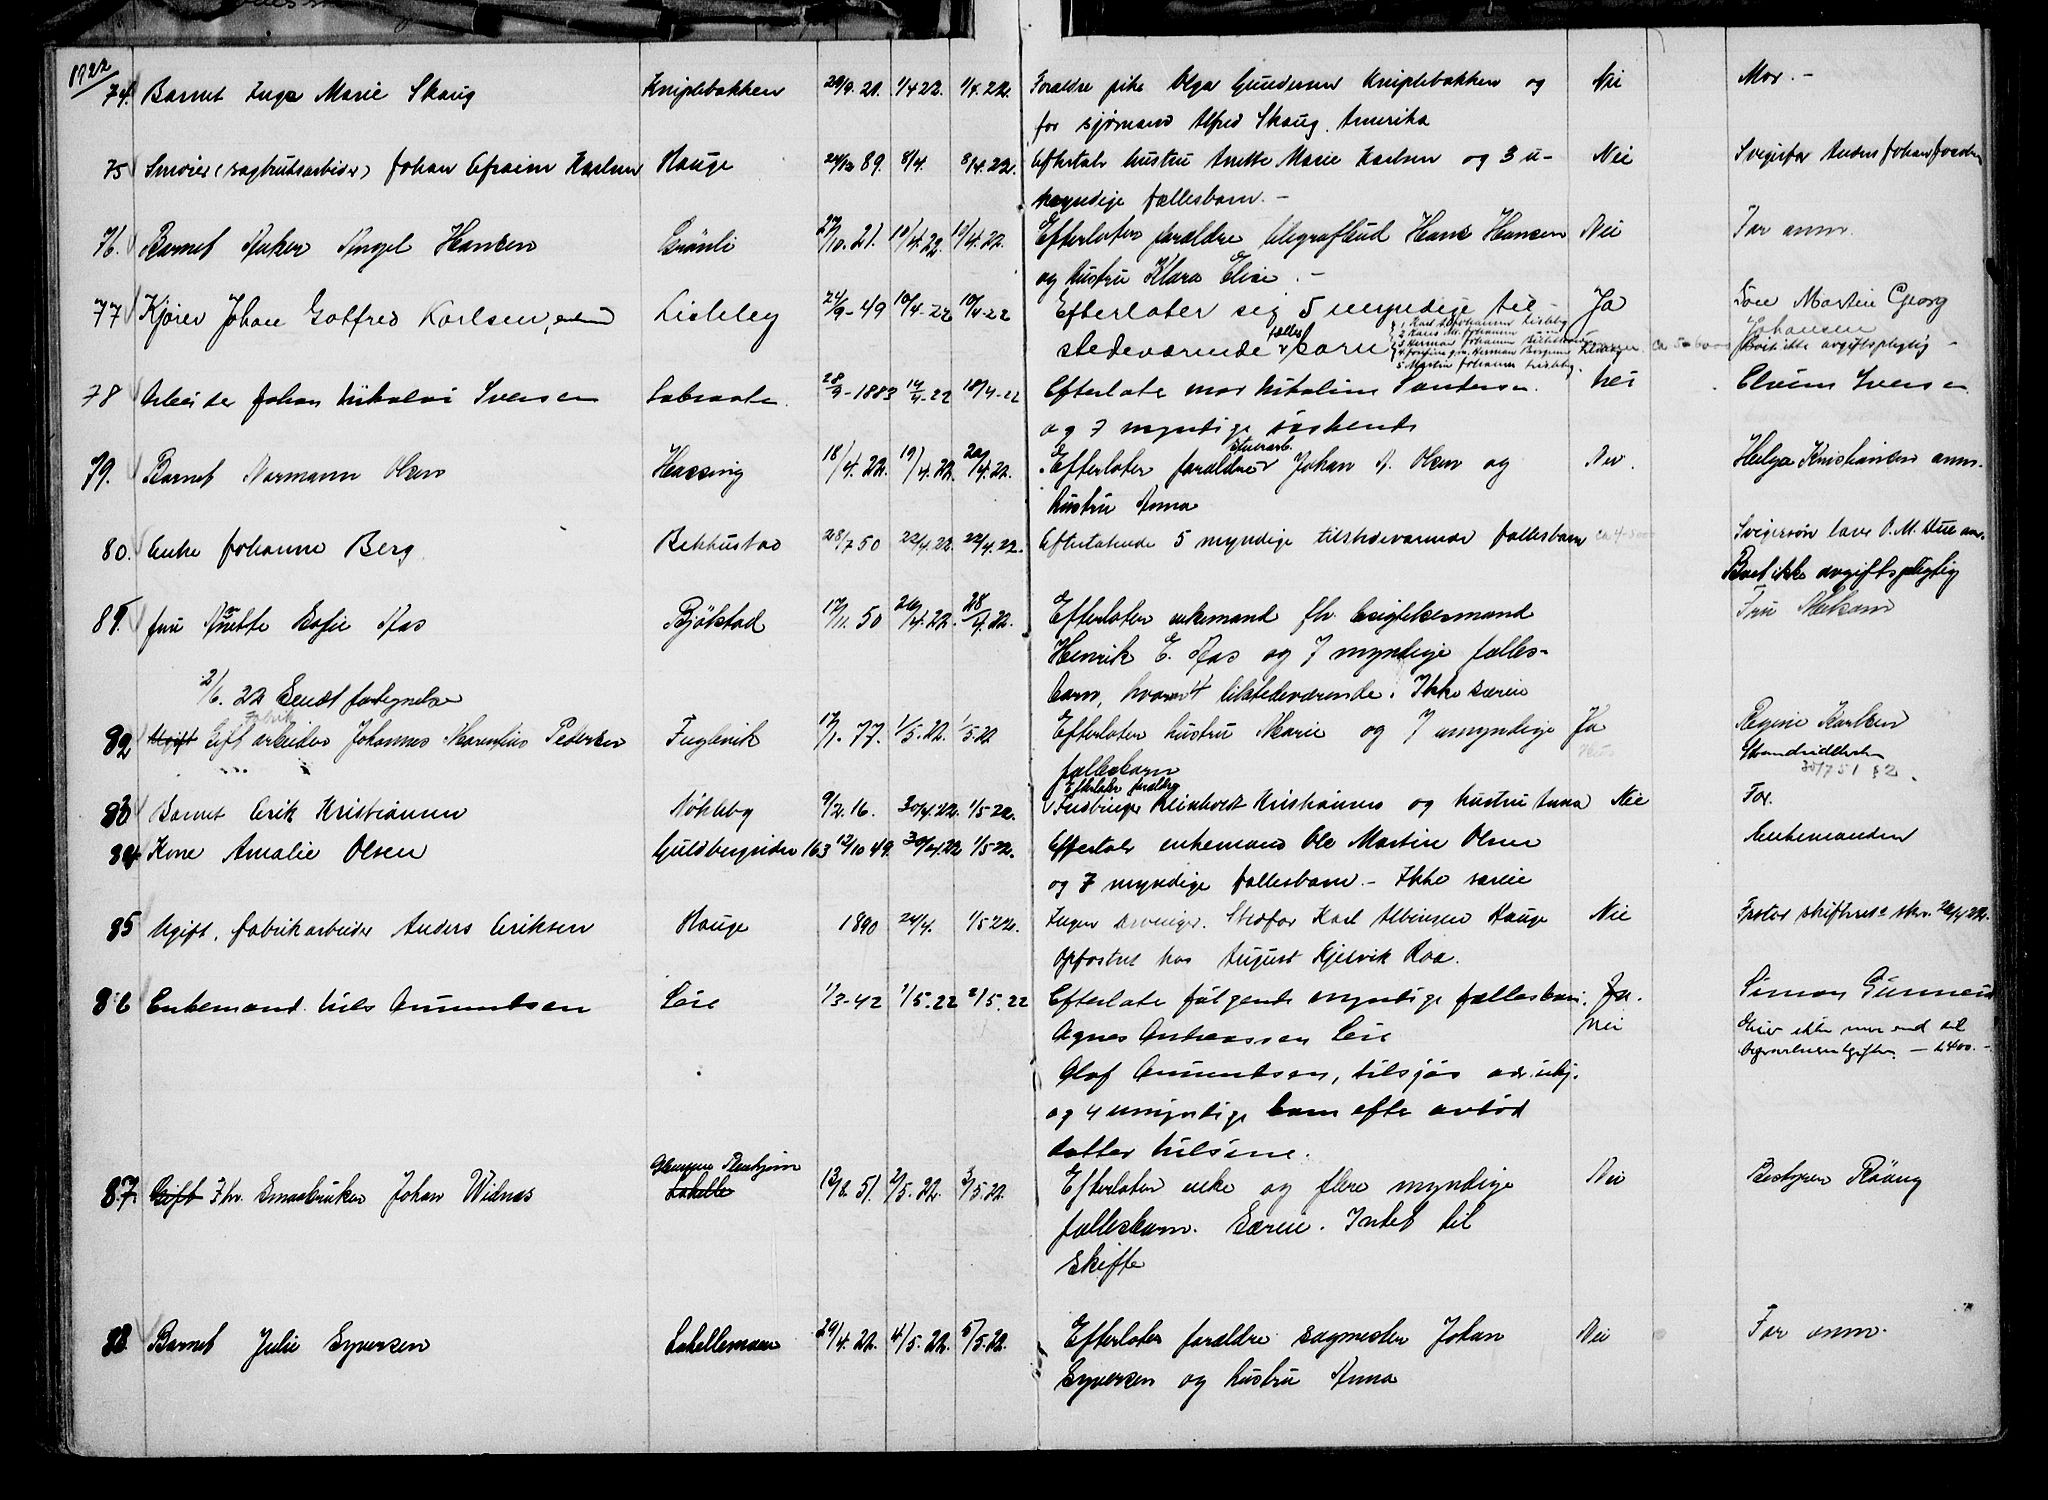 1922
74. Barnet Inga Marie Skaug Kniplebakken 29/9. 21. 1/4 22. 1/4. 22. Forældre pike Olga Gundersen Kniplebakken og Nei Mor. -
for sjømand Alfred Skaug. Amerika
75 Smører (sagbruksarbeider) Johan Efraim Karlsen Hauge 24/12 89. 8/4. 8/4. 22. Efterlater hustru Anette Marie Karlsen og 3 u- Nei Svigerfar Anders Johan
myndige fællesbarn. -
76. Barnet Anker Angel Hansen Grönli 27/10. 21. 10/4. 22. 10/4. 22. Efterlater forældre telegrafbud Hans Hansen Nei Far anm.
og hustru Klara Elise. -
77 Kjörer Johan Gotfred Karlsen, Lisleby 24/9 - 49 10/4 - 22 10/4 - 22 Efterlater sig 5 myndige til Ja Sön Martin Georg
Johansen
stedeværende fælles barn 1. Karl Johansen Lisleby
2 Hans M. Johansen
3 Herman Johansen
4. Josefine g.m. Herman
5 Martin Johansen Lisleby. ca 5-6000 Boet ikke avgiftspligtig -
78 Arbeider Johan Nikolai Svensen Labraaten. 28/9 - 1883 14/4 - 22 18/4 - 22 Efterlate mor Nikoline Nei Svensen
og 7 myndige söskende
79. Barnet Normann Olsen Hassing 18/4. 22. 19/4. 22. 20/4. 22. Efterlater forældre stuerarb. Johan A. Olsen og Nei. Helga Kristiansen anm.
hustru Anna
80. Enke Johanne Berg Bekkustad 28/7 50 22/4. 22. 22/4. 22. Efterlatende 5 myndige tilstedeværende fællesbarn ca 4-5000 Svigersön O. M. Hue anm.
Boet ikke avgiftspligtig
81. fru Anette Sofie Aas Bjölstad 17/11. 50 26/4. 22. 28/4. 22. Efterlater enkemand fhv.
Henrik E. Aas og 7 myndige fælles-
2/6. 22 Sendt fortegnelse barn, hvorav 4 tilstedeværende. Ikke særeie
82 Ugift Gift fabrik arbeider Johannes Marentius Pedersen Fuglevik 17/1. 77. 1/5. 22. 1/5. 22 Efterlater hustru Marie og 7 umyndige Ja Regine Karlsen
fællesbarn 30/7 51 § 2.
83 Barnet Erik Kristiansen Nökleby 9/2. 16. 30/4. 22. 1/5 - 22. Efterlater forældre Reinholdt Kristiansen og hustru Anna Nei Far.
84 Kone Amalie Olsen Guldbergsiden 163 12/10 49. 30/4. 22 1/5 - 22. Efterlater enkemand Ole Martin Olsen Enkemanden
og 7 myndige fællesbarn. - Ikke særeie
85 Ugift. fabrikarbeider Anders Eriksen Hauge 1890 24/4. 1/5 - 22. Ingen arvinger. Stedfar Karl Albinsen Hauge Nei skifteret
opfostret hos August Kjelvik Roa.
86 Enkemand Nils Amundsen Leie 1/3 - 42 1/5. 22 2/5. 22 Efterlate følgende myndige fællesbarn. Ja.
Nei Simon
Agnes Andreassen Leie
Olof Amundsen, tilsjös adr. ubj.
og 4 umyndige barn efter avdöd
datter Nilsine.
87. Gift Fhv. Smaabruker Johan Widnæs Glemmen Pleiehjem
Lahelle 13/8. 51. 2/5. 22. 3/5. 22 Efterlater enke og flere myndige Nei Bestyrer Röäng
fællesbarn. Særeie. Intet til
skifte
88 Barnet Julie Syversen Lahellemoen 29/4. 22. 4/5. 22. 5/5. 22. Efterlater forældre sagmester Johan Nei Far anm.
Syversen og hustru Anna